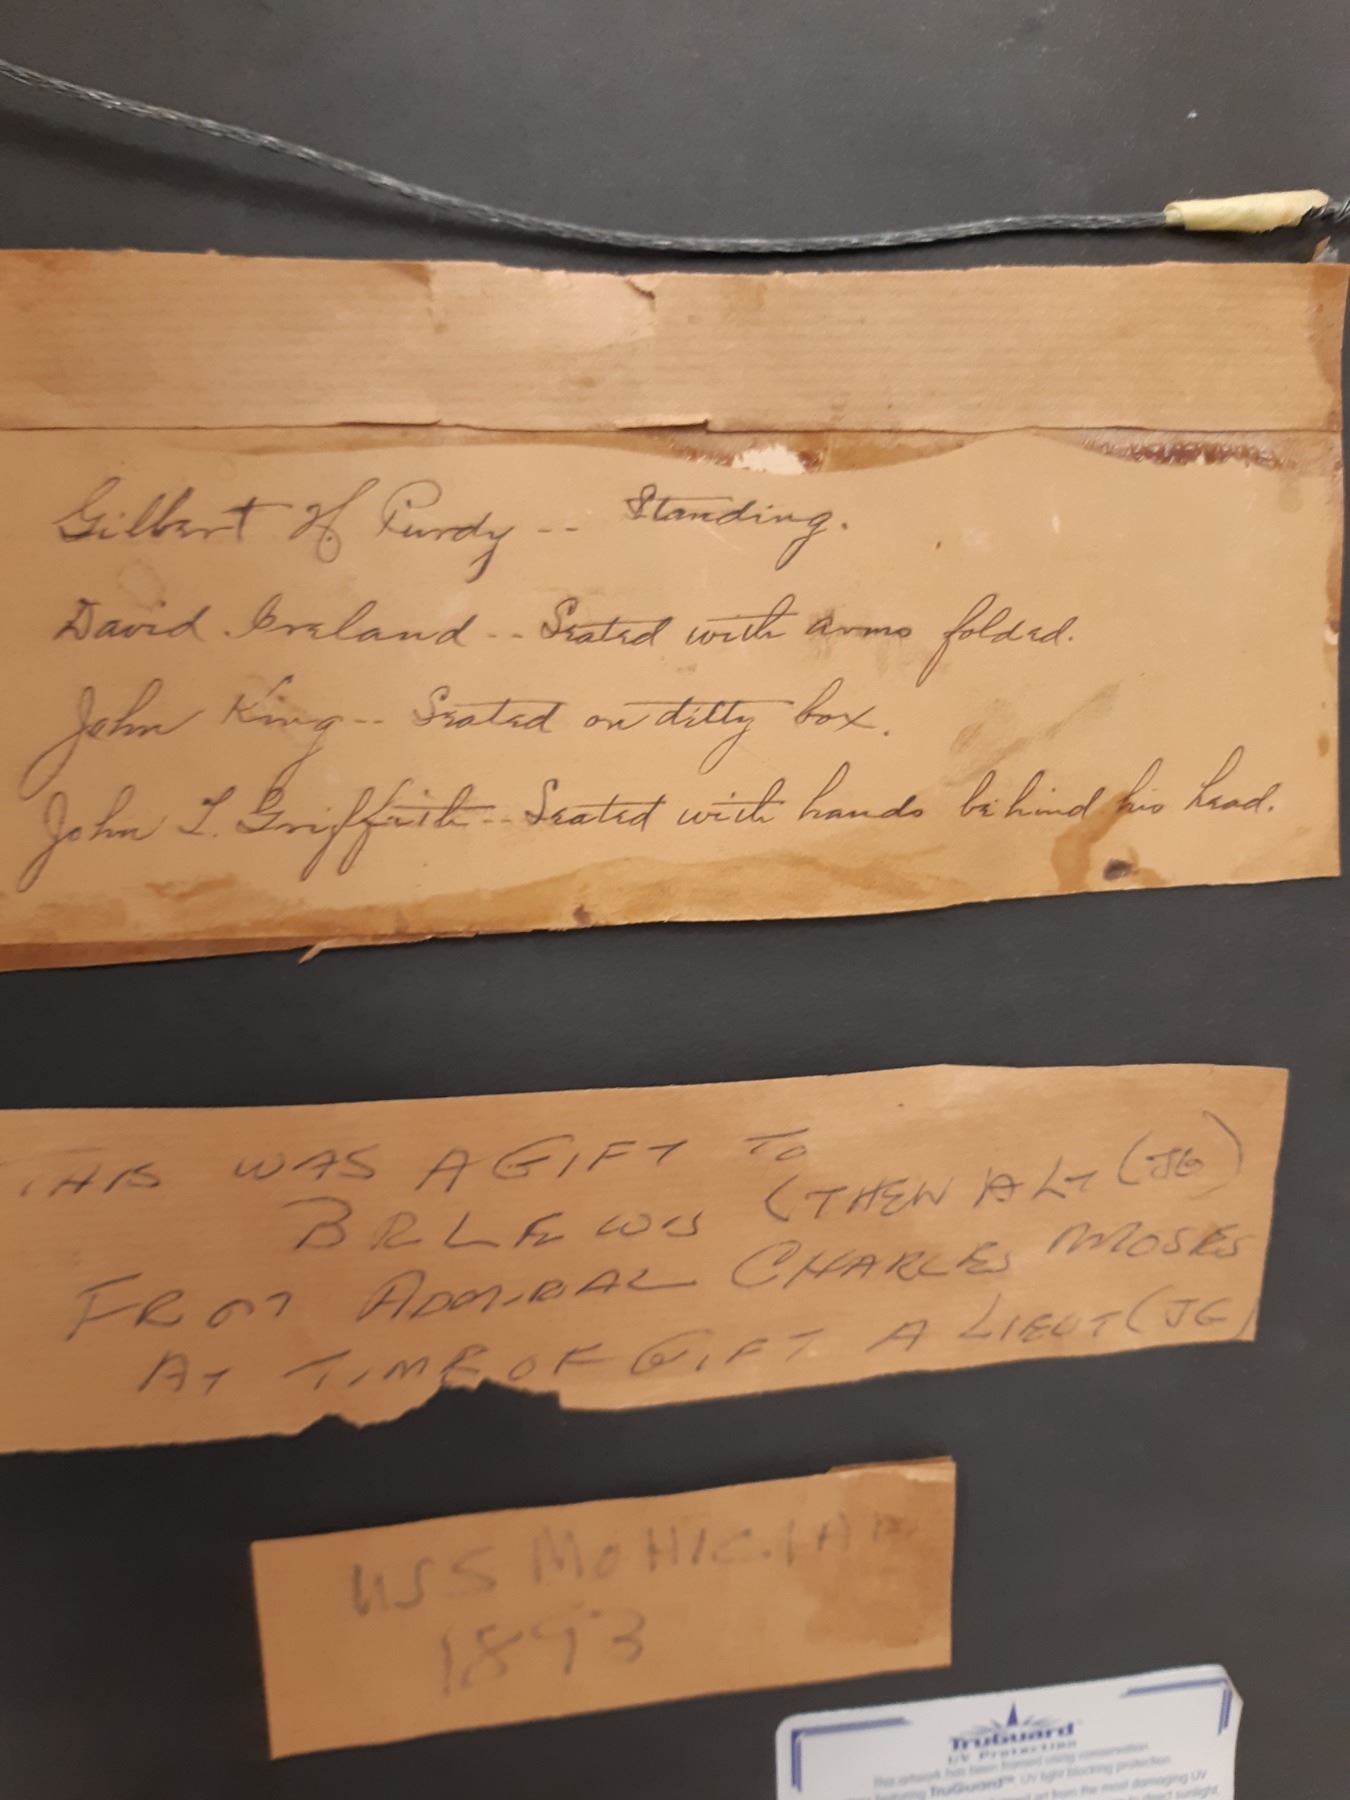 Gilbert H. Purdy -- Standing.
David Ireland -- Seated with arms folded.
John King -- Seated on ditty box.
John T. Griffith -- Seated with hands behind his head.
THIS WAS A GIFT TO
(THEN A LT (JG)
FROM ADMIRAL CHARLES MOSES
AT TIME OF GIFT A LIEUT (JG)
USS MOHICIAN
1893
TruGuard™
UV Protection
This artwork has been framed using conservation
featuring TruGuard™ UV light blocking protection
art from the most damaging UV
direct sunlight,